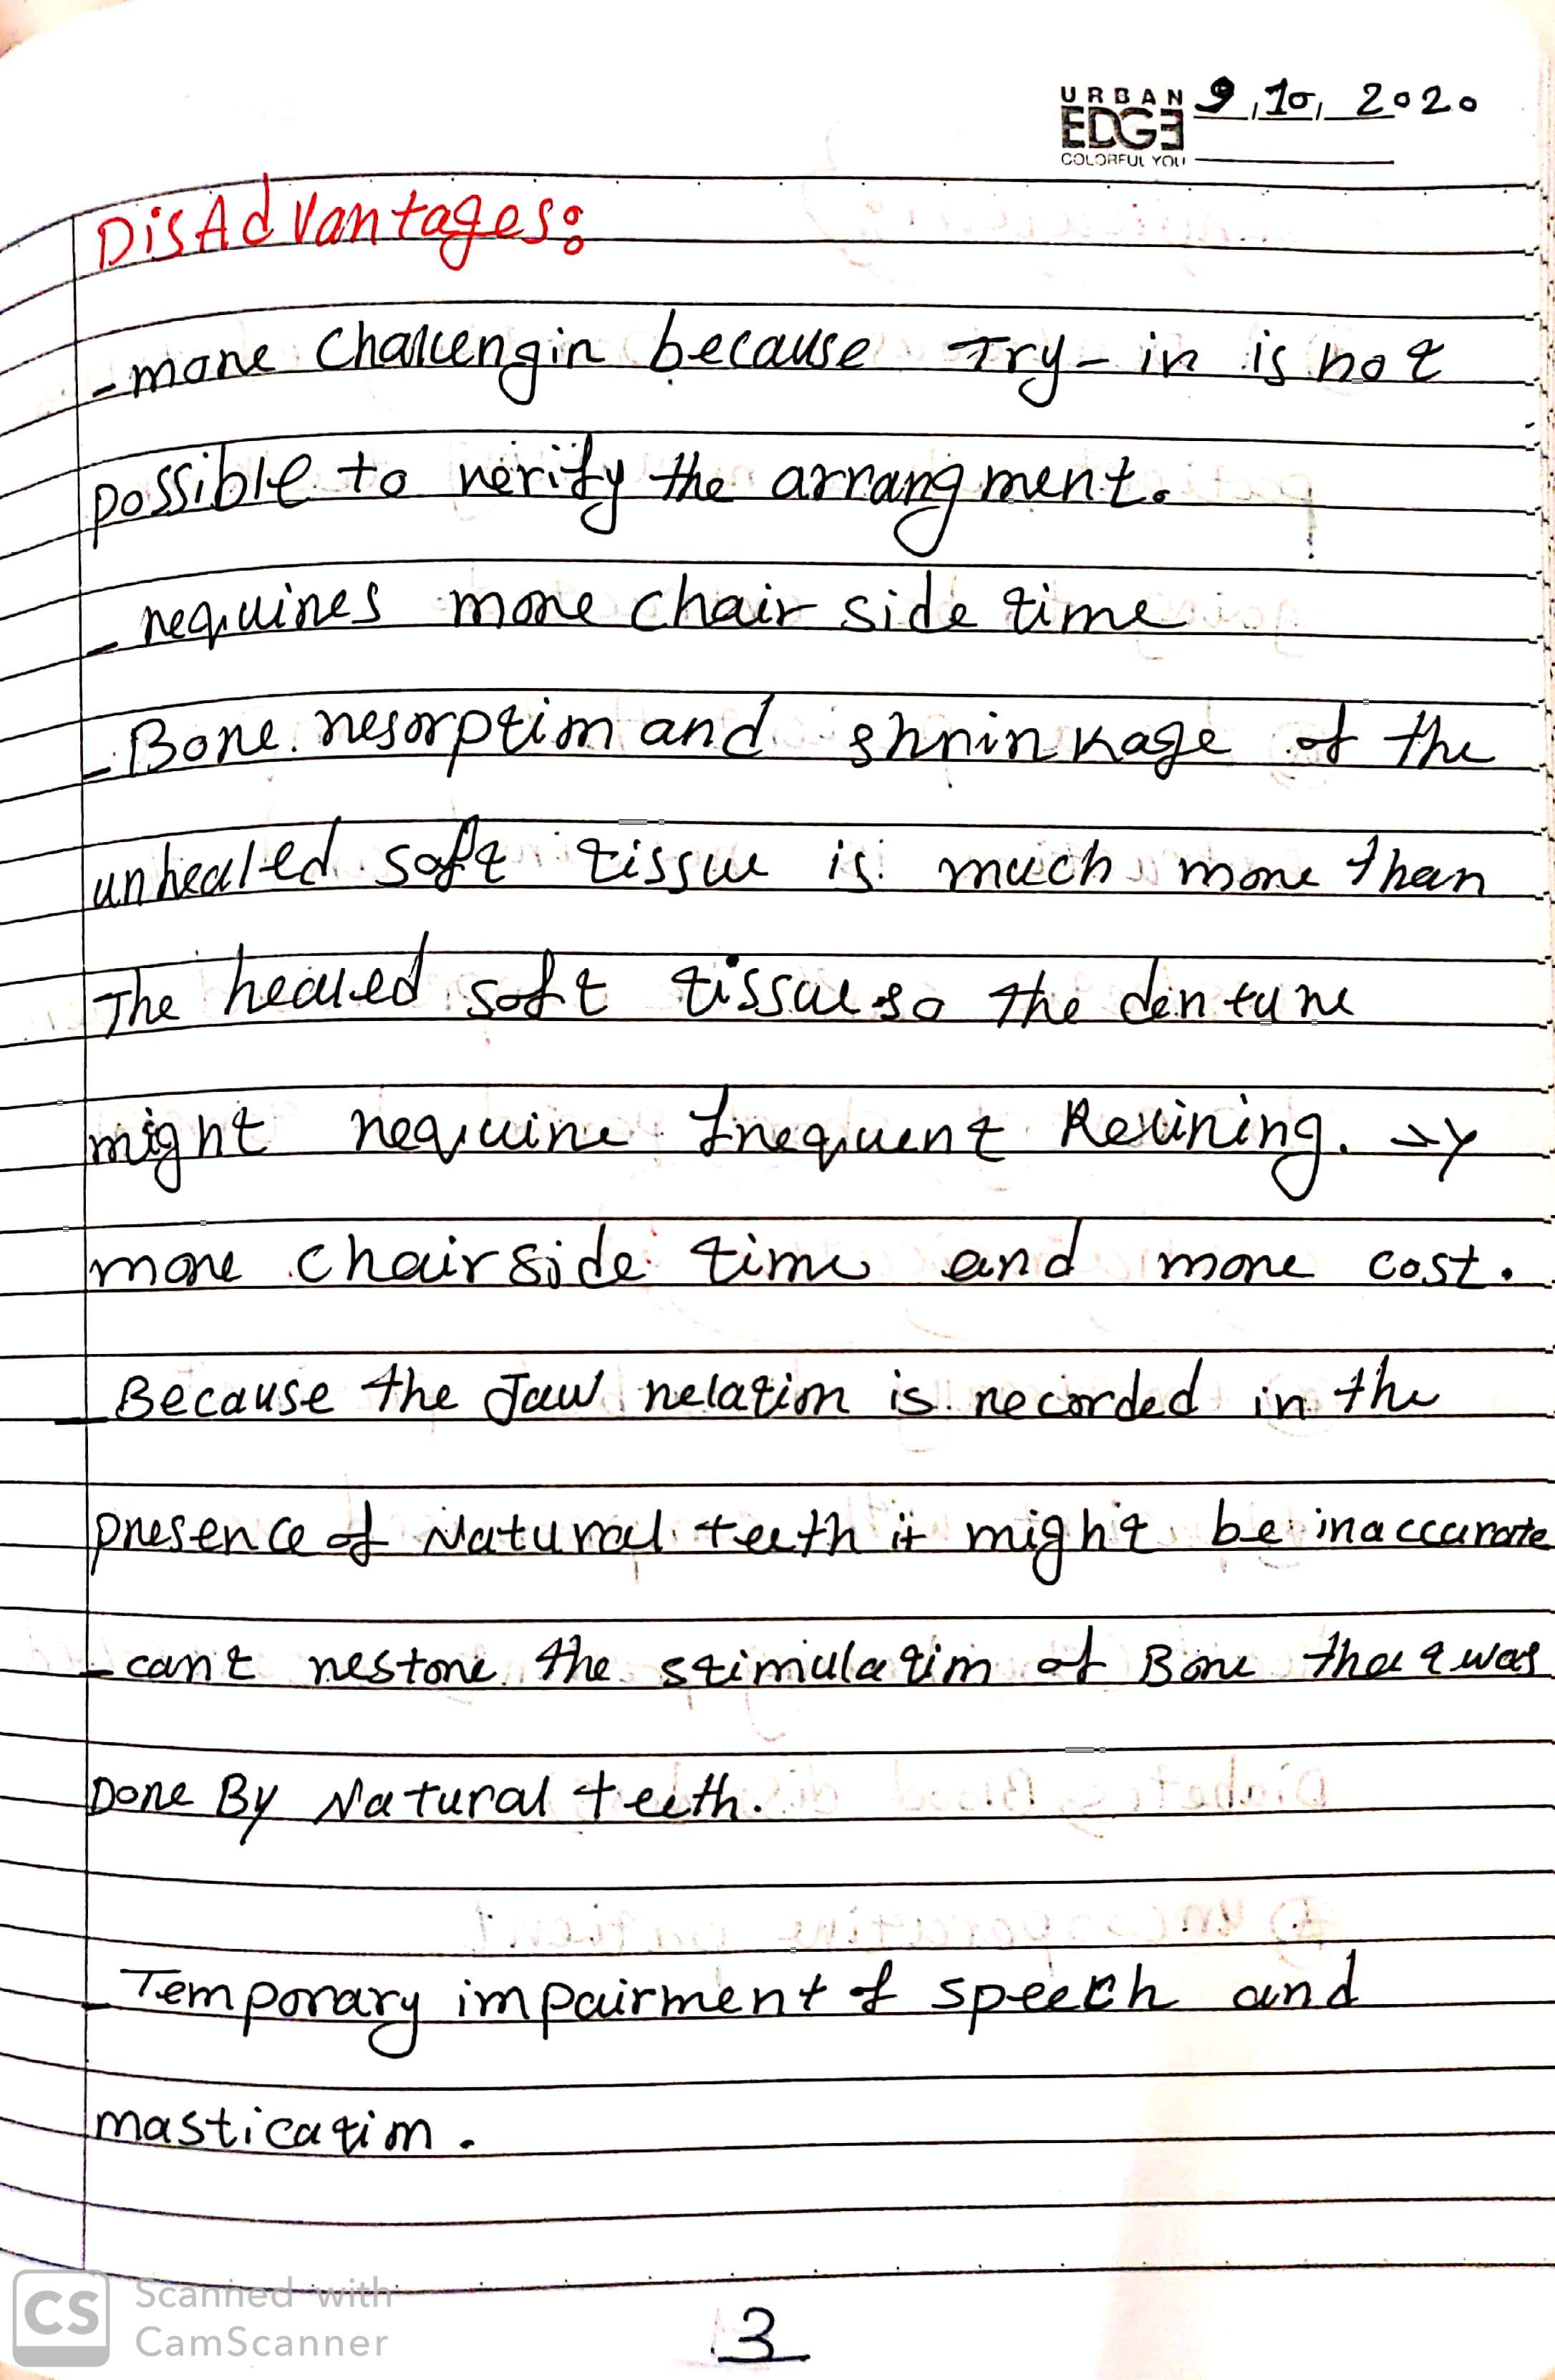 URBAN
EDGE
COLORFUL YOU
9, 10, 2020
DisAdvantages:
- more challengin because Try-in is not
possible to verify the arrangment.
- requires more chair side time
- Bone resorption and shrinkage of the
unhealed soft tissue is much more than
The healed soft tissue so the denture
might require frequent Relining. →
more chairside time and more cost.
- Because the Jaw relation is recorded in the
presence of Natural teeth it might be inaccurate
- cant restore the stimulation of Bone that was
Done By Natural teeth.
- Temporary impairment of speech and
mastication.
3
CS Scanned with
CamScanner